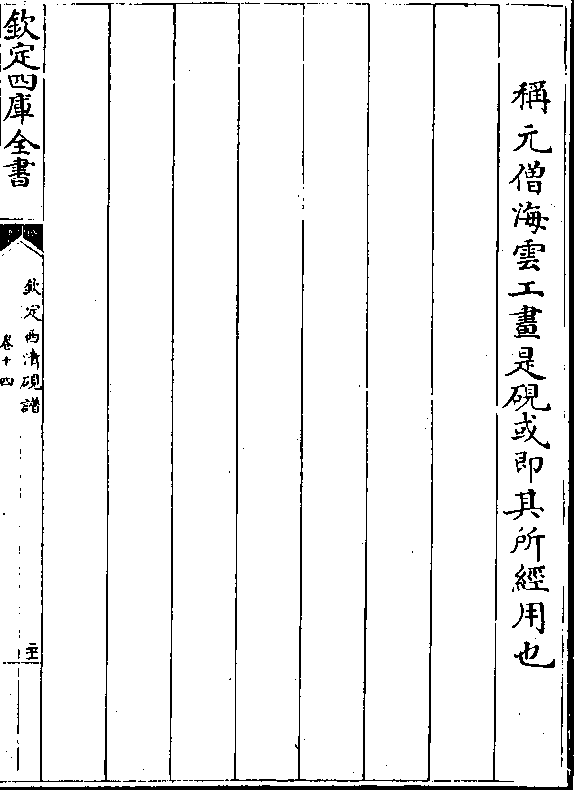 稱元僧海雲工畫是硯或即其所經用也
欽定四庫全書
欽定西清硯譜
卷十四